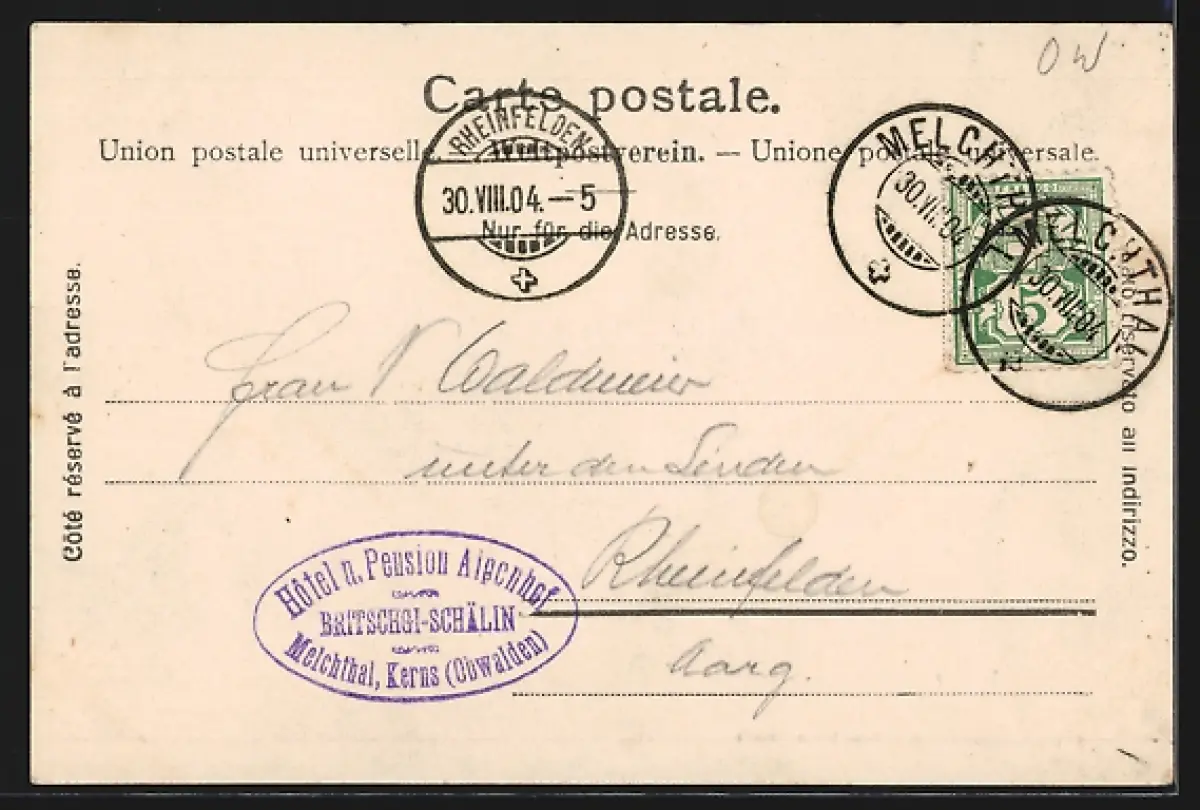 OW
Carte postale.
Union postale universelle. — Weltpostverein. — Unione postale universale.
Nur für die Adresse.
RHEINFELDEN
30.VIII.04.—5
MELCHTHAL
30.VIII.04
MELCHTHAL
30.VIII.04
5
Côté réservé à l'adresse.
Lato riservato all indirizzo.
Frau V Waldmeier
unter den Linden
Rheinfelden
Aarg.
Hôtel u. Pension Alpenhof
BRITSCHGI-SCHÄLIN
Melchthal, Kerns (Obwalden)